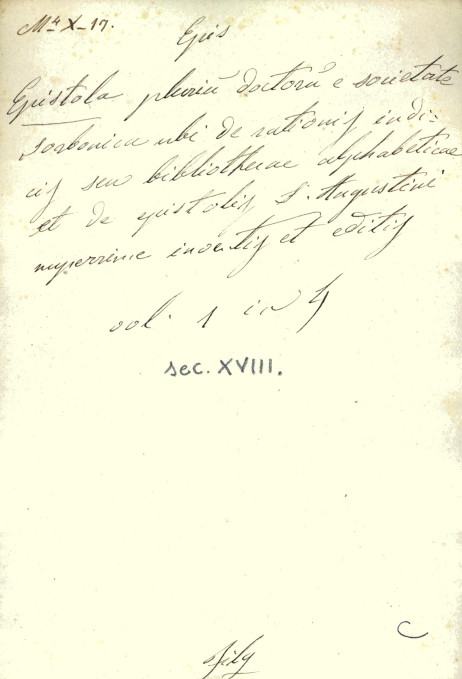 Ms X-17.
Epis
Epistola pluriū doctorū e societate
sorbonica ubi de rationis indi-
cis seu bibliothecae alphabeticae
et de epistolis S. Augustini
nuperrime inventis et editis
vol. 1 in 4
sec. XVIII.
C